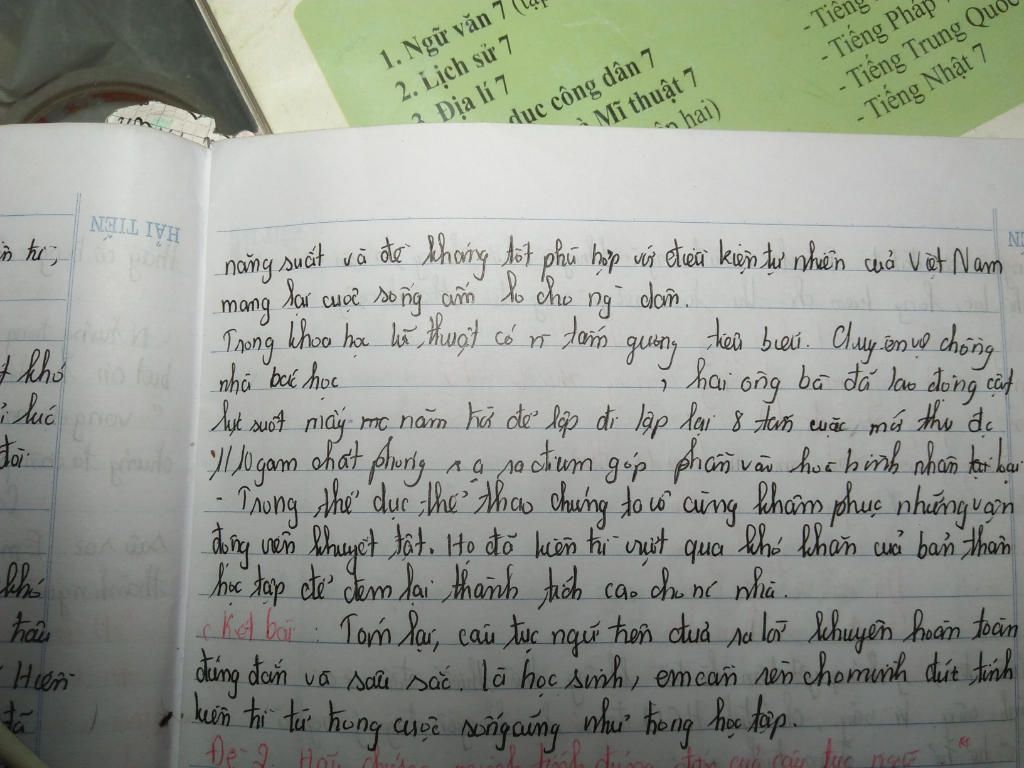 1. Ngữ văn 7 (tập
2. Lịch sử 7
3. Địa lí 7
dục công dân 7
Mĩ thuật 7
hai)
- Tiếng
- Tiếng Pháp 7
- Tiếng Trung Quốc
- Tiếng Nhật 7
HẢI TIẾN
năng suất và đề kháng tốt phù hợp với điều kiện tự nhiên của Việt Nam
mang lại cuộc sống ấm lo cho ng dân.
Trong khoa học kĩ thuật có n tấm gương tiêu biểu. Chuyện vợ chồng
nhà bác học , hai ông bà đã lao động cật
lực suốt mấy mc năm trời để lập đi lập lại 8 tấn quặc, mới thu đc
1/10gam chất phóng xạ ractium góp phần vào hoà bình nhân loại
- Trong thể dục, thể thao chúng ta vô cùng khâm phục những vận
động viên khuyết tật. Họ đã kiên trì vượt qua khó khăn của bản thân
học tập để đem lại thành tích cao cho nc nhà.
c, Kết bài : Tóm lại, câu tục ngữ trên đưa ra lời khuyên hoàn toàn
đúng đắn và sâu sắc. Là học sinh, em cần rèn cho mình đức tính
kiên trì từ trong cuộc sống cũng như trong học tập.
Đề 2. chứng minh tính đúng đắn của câu tục ngữ
khó
lúc
đời.
khó
Hiền
đã